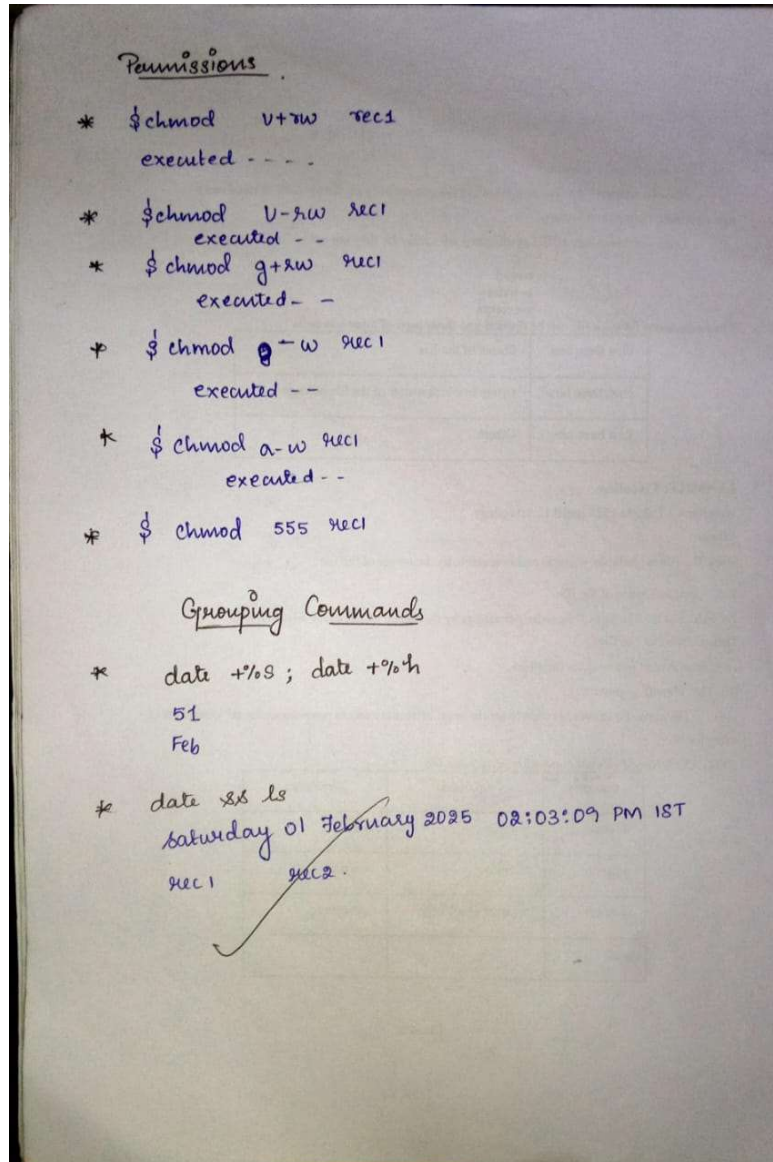 Permissions
* $chmod u+rw rec1
executed - - - -
* $chmod u-rw rec1
executed - -
* $ chmod g+rw rec1
executed - -
* $ chmod g-w rec1
executed - -
* $ chmod a-w rec1
executed - -
* $ chmod 555 rec1
Grouping Commands
* date +%S ; date +%h
51
Feb
* date && ls
Saturday 01 February 2025 02:03:09 PM IST
rec1 rec2.